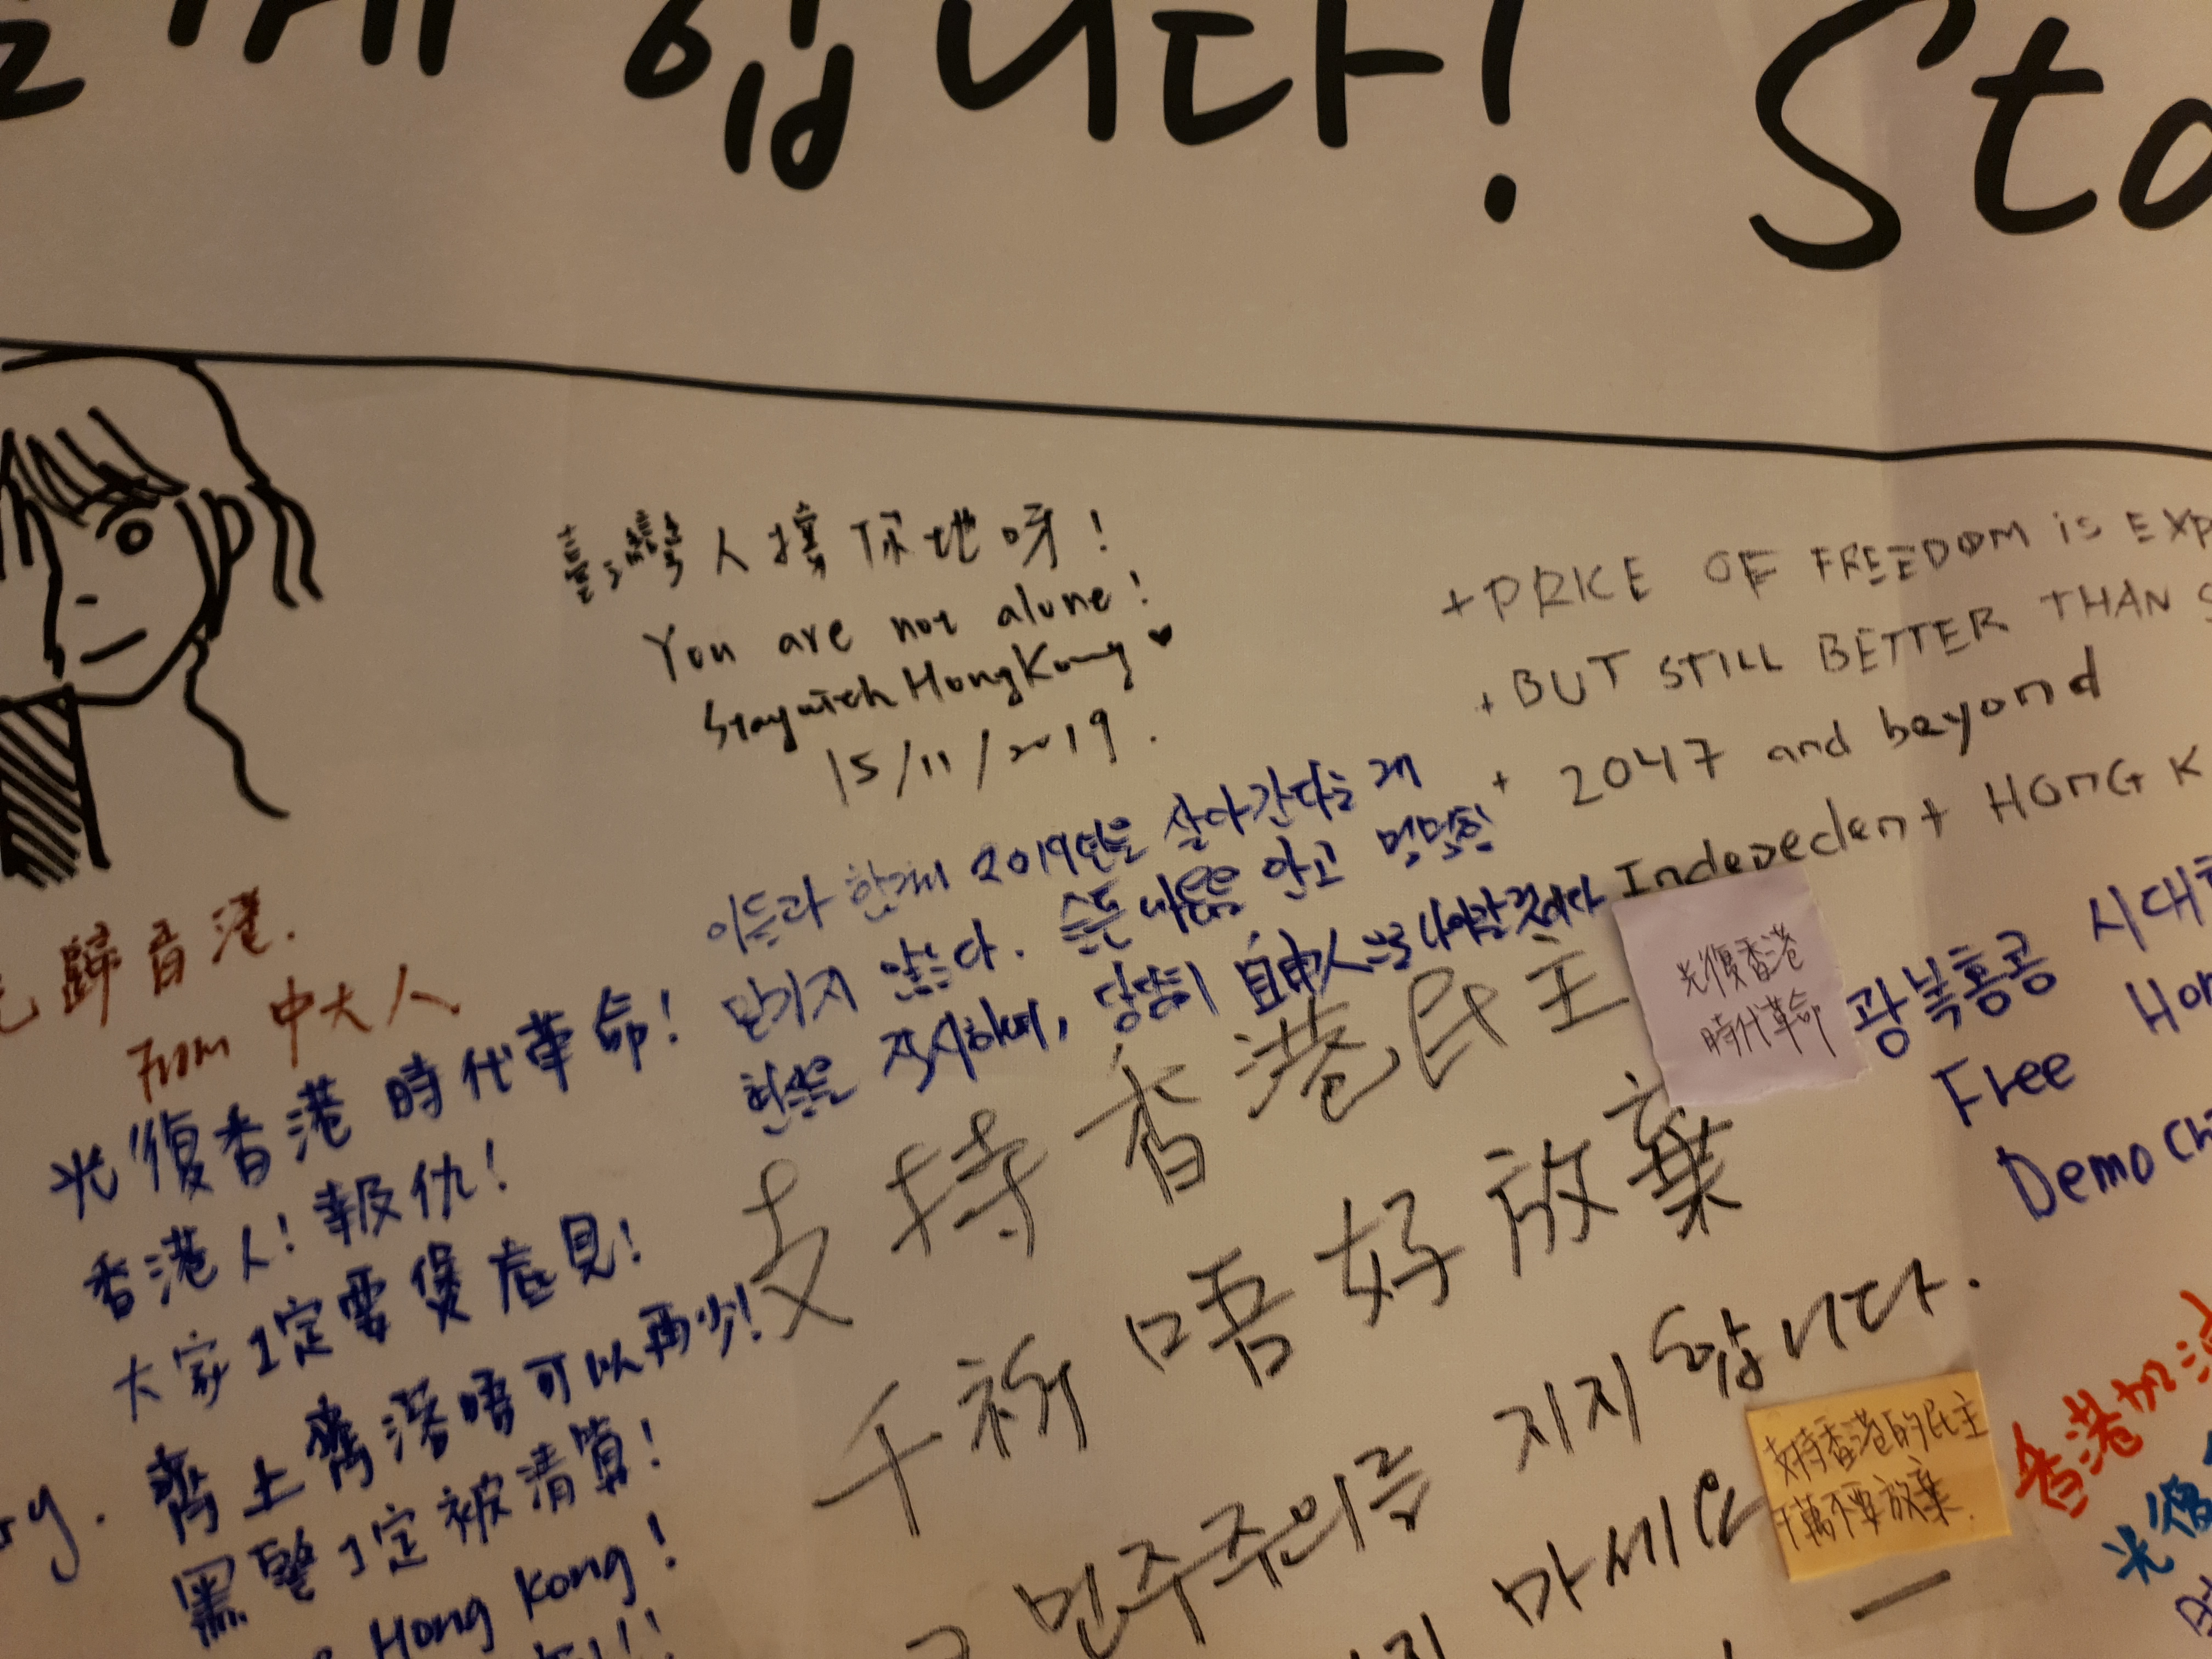 입니다! Sto
臺灣人撐你地呀!
You are not alone!
Stay with Hong Kong ♥
15/11/2019.
+ PRICE OF FREEDOM is EXP
+ BUT STILL BETTER THAN S
+ 2047 and beyond
+ Indepedent HONG K
이들과 함께 2019년을 살아간다는 게
믿기지 않는다. 슬픈 마음을 안고 먹먹한
현실을 직시하며, 당당히 自由人으로 나아갈 것이다
歸香港.
From 中大人
光復香港 時代革命!
香港人! 報仇!
大家1定要煲底見!
齊上齊落唔可以再少!
黑警1定被清算!
Hong Kong!
支持香港民主
千祈唔好放棄
민주주의를 지지합니다.
지 마세요
光復香港
時代革命
광복홍콩 시대
Free Hon
Democ
支持香港的民主
千萬不要放棄.
香港加油
光復